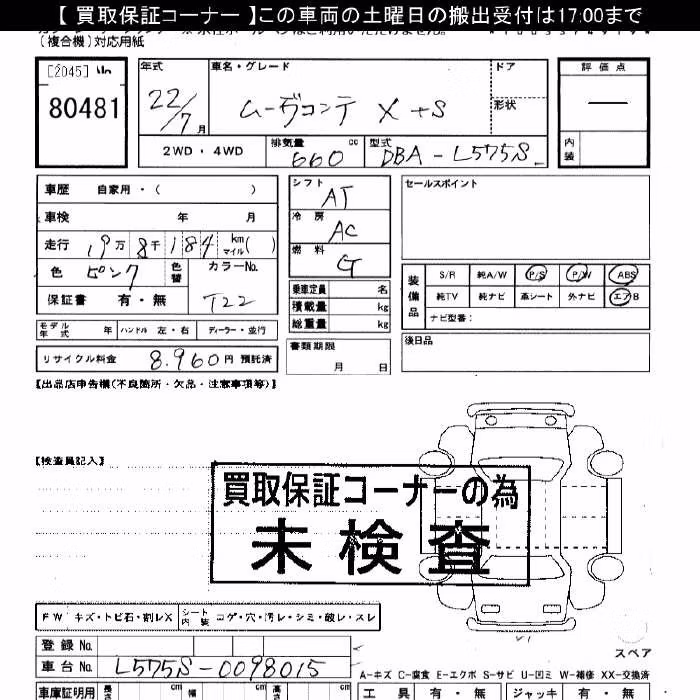 【 買取保証コーナー 】この車両の土曜日の搬出受付は17:00まで
(複合機)対応用紙
[2045]
80481
年式 車名・グレード ドア 評価点
22/7月 ムーヴコンテ X+S 形状 —
内装
2WD・4WD 排気量 660 cc 型式 DBA-L575S
車歴 自家用・( )
車検 年 月
走行 19万8千184 km マイル( )
色 ピンク 色替 カラーNo. T22
保証書 有・無
シフト AT
冷房 AC
燃料 G
乗車定員 名
積載量 kg
総重量 kg
セールスポイント
装備品 S/R 純A/W P/S P/W ABS
純TV 純ナビ 革シート 外ナビ エアB
ナビ型番:
モデル年式 年 ハンドル 左・右 ディーラー・並行
書類期限 月 日
後日品
リサイクル料金 8,960円 預託済
【出品店申告欄(不良箇所・欠品・注意事項等)】
【検査員記入】
買取保証コーナーの為
未検査
FW キズ・トビ石・割レX シート内装 コゲ・穴・汚レ・シミ・破レ・スレ
登録No.
車台No. L575S-0098015
スペア
A-キズ C-腐食 E-エクボ S-サビ U-凹ミ W-補修 XX-交換済
車庫証明用 長さ cm 幅 cm 高さ cm 工具 有・無 ジャッキ 有・無